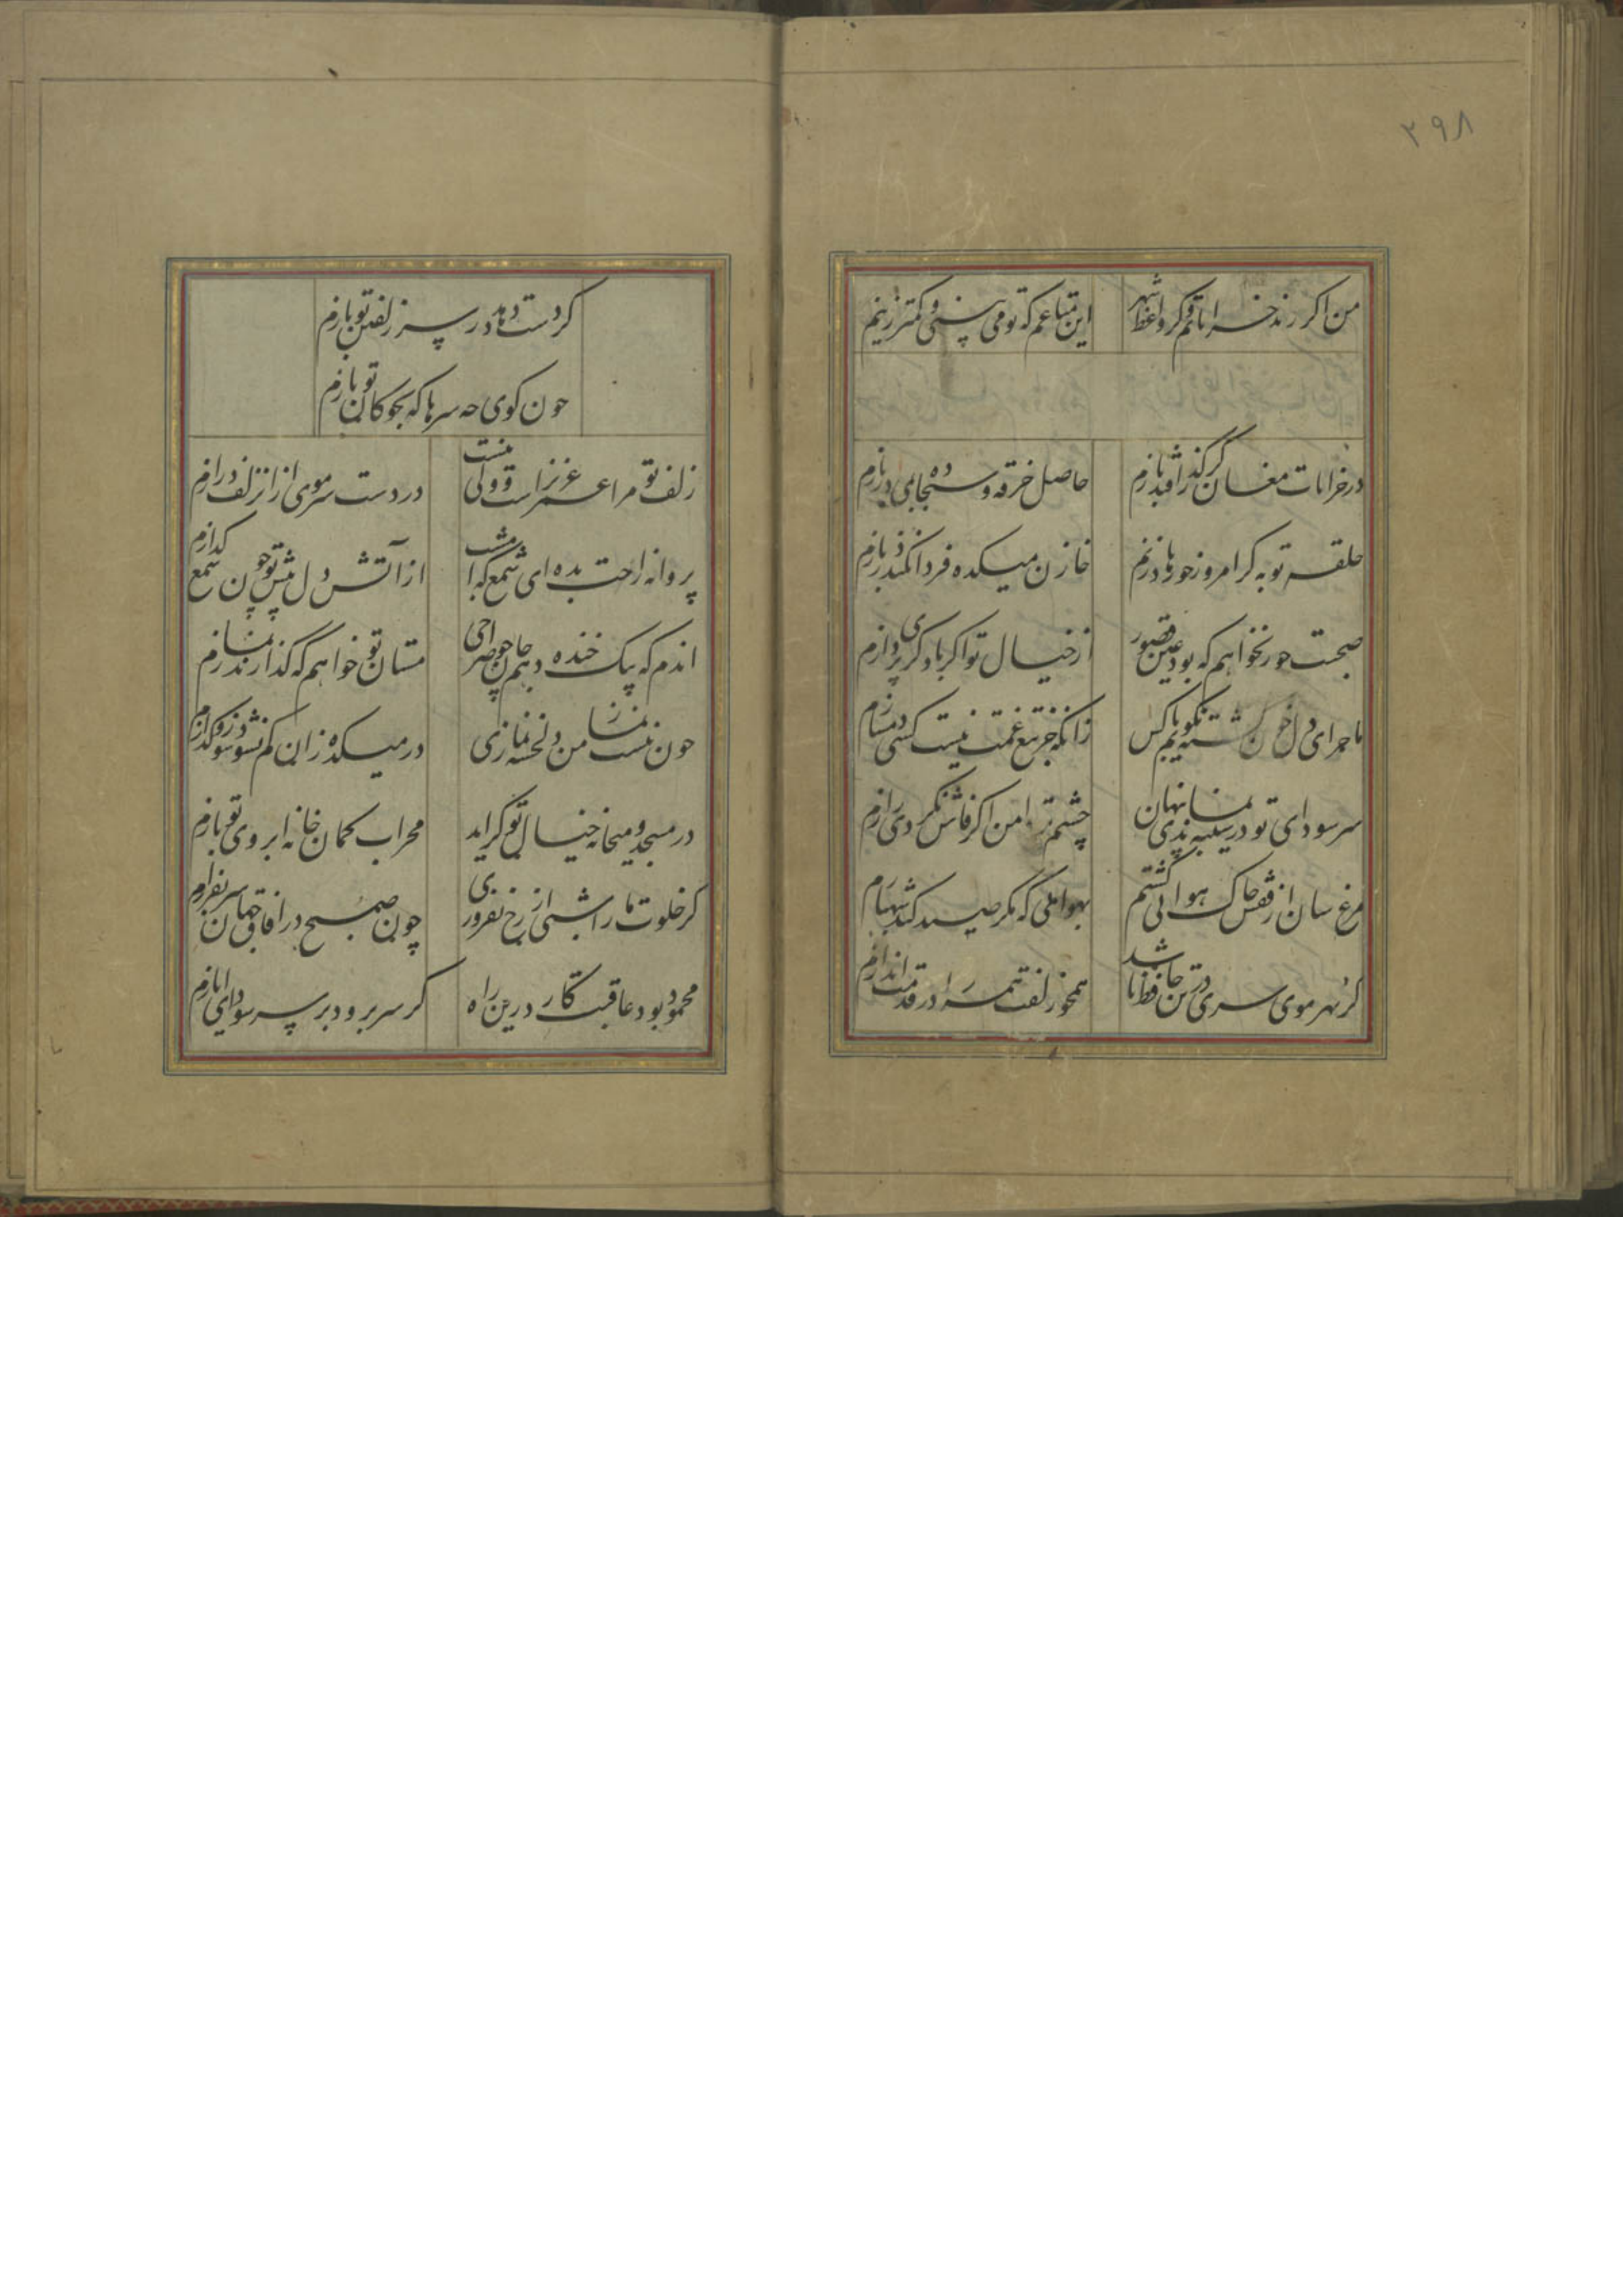 ۲۹۸
من اگر رند خراباتم و گر واعظ شهر این متاعم که تو می بینی و کمتر زینم
در خرابات مغان گر گذر افتد بازم حاصل خرقه و سجاده بجای در بازم
حلقه توبه گر امروز جو زهاد زنم خازن میکده فردا نکند در بازم
صحبت حور نخواهم که بود عین قصور از خیال تو اگر با دگری پردازم
ماجرای دل خون گشته نگویم با کس زانکه جز تیغ غمت نیست کسی دمسازم
سر سودای تو در سینه بماندی پنهان چشم تر دامن اگر فاش نکردی رازم
مرغ سان از قفس خاک هوائی گشتم بهوایی که مگر صید کند شهبازم
گر بهر موی سری در تن حافظ باشد همچو زلفت همه را در قدمت اندازم
گر دست دهد در سر زلفین تو بازم
جون گوی جه سرها که بچوگان تو بازم
زلف تو مرا عمر عزیز است ولی نیست در دست سر موی از آن زلف درازم
پروانه راحت بده ای شمع که امشب از آتش دل پیش تو چون شمع گدازم
اندم که بیک خنده دهم جان جو صراحی مستان تو خواهم که گذارند نمازم
جون نیست نماز من دلخسته نمازی در میکده زان کم نشود سوز و گدازم
در مسجد و میخانه خیال تو گر آید محراب کمان خانه ابروی تو بازم
گر خلوت ما را شبی از رخ بفروزی چون صبح در آفاق جهان سر بفرازم
محمود بود عاقبت کار درین راه گر سر برود بر سر سودای ایازم